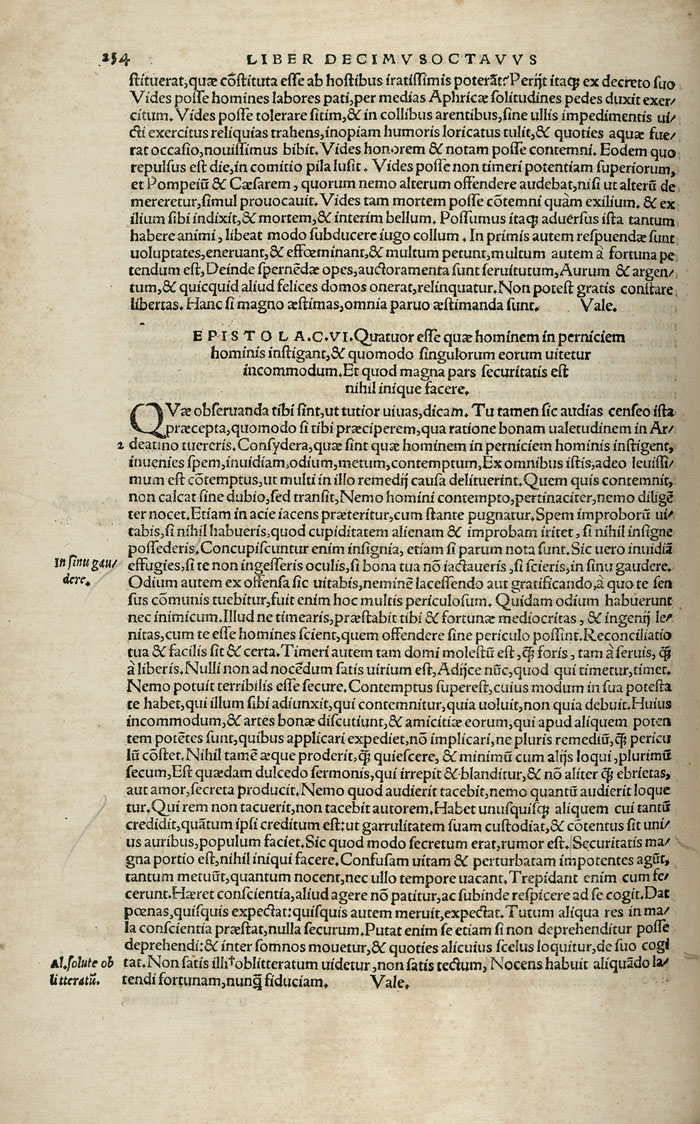 254 LIBER DECIMVSOCTAVVS
ſtituerat,quæ cõſtituta eſſe ab hoſtibus iratiſſimis poterãt:Perijt itaq; ex decreto ſuo
Vides poſſe homines labores pati,per medias Aphricæ ſolitudines pedes duxit exer/
citum. Vides poſſe tolerare ſitim,& in collibus arentibus,ſine ullis impedimentis ui/
cti exercitus reliquias trahens,inopiam humoris loricatus tulit,& quoties aquæ fue/
rat occaſio,nouiſſimus bibit. Vides honorem & notam poſſe contemni. Eodem quo
repulſus eſt die,in comitio pila luſit. Vides poſſe non timeri potentiam ſuperiorum,
et Pompeiũ & Cæſarem, quorum nemo alterum offendere audebat,niſi ut alterũ de
mereretur,ſimul prouocauit. Vides tam mortem poſſe cõtemni quàm exilium. & ex
ilium ſibi indixit,& mortem,& interim bellum. Poſſumus itaq; aduerſus iſta tantum
habere animi, libeat modo ſubducere iugo collum. In primis autem reſpuendæ ſunt
uoluptates,eneruant,& effœminant,& multum petunt,multum autem à fortuna pe
tendum eſt,Deinde ſpernẽdæ opes,auctoramenta ſunt ſeruitutum,Aurum & argen/
tum,& quicquid aliud felices domos onerat,relinquatur.Non poteſt gratis conſtare
libertas. Hanc ſi magno æſtimas,omnia paruo æſtimanda ſunt. Vale.
EPISTOLA.C.VI.Quatuor eſſe quæ hominem in perniciem
hominis inſtigant,& quomodo ſingulorum eorum uitetur
incommodum.Et quod magna pars ſecuritatis eſt
nihil inique facere.
QVæ obſeruanda tibi ſint,ut tutior uiuas,dicam. Tu tamen ſic audias cenſeo iſta
præcepta,quomodo ſi tibi præciperem,qua ratione bonam ualetudinem in Ar/
2 deatino tuereris.Conſydera,quæ ſint quæ hominem in perniciem hominis inſtigent,
inuenies ſpem,inuidiam,odium,metum,contemptum,Ex omnibus iſtis,adeo leuiſſi/
mum eſt cõtemptus,ut multi in illo remedij cauſa delituerint.Quem quis contemnit,
non calcat ſine dubio,ſed tranſit,Nemo homini contempto,pertinaciter,nemo diligẽ
ter nocet.Etiam in acie iacens præteritur,cum ſtante pugnatur.Spem improborũ ui/
tabis,ſi nihil habueris,quod cupiditatem alienam & improbam iritet, ſi nihil inſigne
poſſederis.Concupiſcuntur enim inſignia, etiam ſi parum nota ſunt.Sic uero inuidiã
In ſinu gau/
dere.
effugies,ſi te non ingeſſeris oculis,ſi bona tua nõ iactaueris ,ſi ſcieris,in ſinu gaudere.
Odium autem ex offenſa ſic uitabis,neminẽ laceſſendo aut gratificando,à quo te ſen
ſus cõmunis tuebitur,fuit enim hoc multis periculoſum. Quidam odium habuerunt
nec inimicum.Illud ne timearis,præſtabit tibi & fortunæ mediocritas, & ingenij le/
nitas,cum te eſſe homines ſcient,quem offendere ſine periculo poſſint.Reconciliatio
tua & facilis ſit & certa.Timeri autem tam domi moleſtũ eſt,q̃ foris, tam à ſeruis, q̃
à liberis. Nulli non ad nocẽdum ſatis uirium eſt,Adijce nũc,quod qui timetur,timet.
Nemo potuit terribilis eſſe ſecure.Contemptus ſupereſt,cuius modum in ſua poteſta
te habet,qui illum ſibi adiunxit,qui contemnitur,quia uoluit,non quia debuit.Huius
incommodum,& artes bonæ diſcutiunt,& amicitiæ eorum,qui apud aliquem poten
tem potẽtes ſunt,quibus applicari expediet,nõ implicari,ne pluris remediũ,q̃ pericu
lũ cõſtet.Nihil tamẽ æque proderit,q̃ quieſcere, & minimũ cum alijs loqui,plurimũ
ſecum,Eſt quædam dulcedo ſermonis,qui irrepit & blanditur, & nõ aliter q̃ ebrietas,
aut amor,ſecreta producit.Nemo quod audierit tacebit,nemo quantũ audierit loque
tur.Qui rem non tacuerit,non tacebit autorem.Habet unuſquiſq; aliquem cui tantũ
credidit,quãtum ipſi creditum eſt:ut garrulitatem ſuam cuſtodiat,& cõtentus ſit uni/
us auribus,populum faciet.Sic quod modo ſecretum erat,rumor eſt. Securitatis ma/
gna portio eſt,nihil iniqui facere.Confuſam uitam & perturbatam impotentes agũt,
tantum metuũt,quantum nocent,nec ullo tempore uacant.Trepidant enim cum fe/
cerunt.Hæret conſcientia,aliud agere nõ patitur,ac ſubinde reſpicere ad ſe cogit.Dat
pœnas,quiſquis expectat:quiſquis autem meruit,expectat.Tutum aliqua res in ma/
la conſcientia præſtat,nulla ſecurum.Putat enim ſe etiam ſi non deprehenditur poſſe
deprehendi:& inter ſomnos mouetur,& quoties alicuius ſcelus loquitur,de ſuo cogi
Al.ſolute ob
litteratũ.
tat.Non ſatis illi†oblitteratum uidetur,non ſatis tectum, Nocens habuit aliquãdo la/
tendi fortunam,nunq̃ fiduciam. Vale.